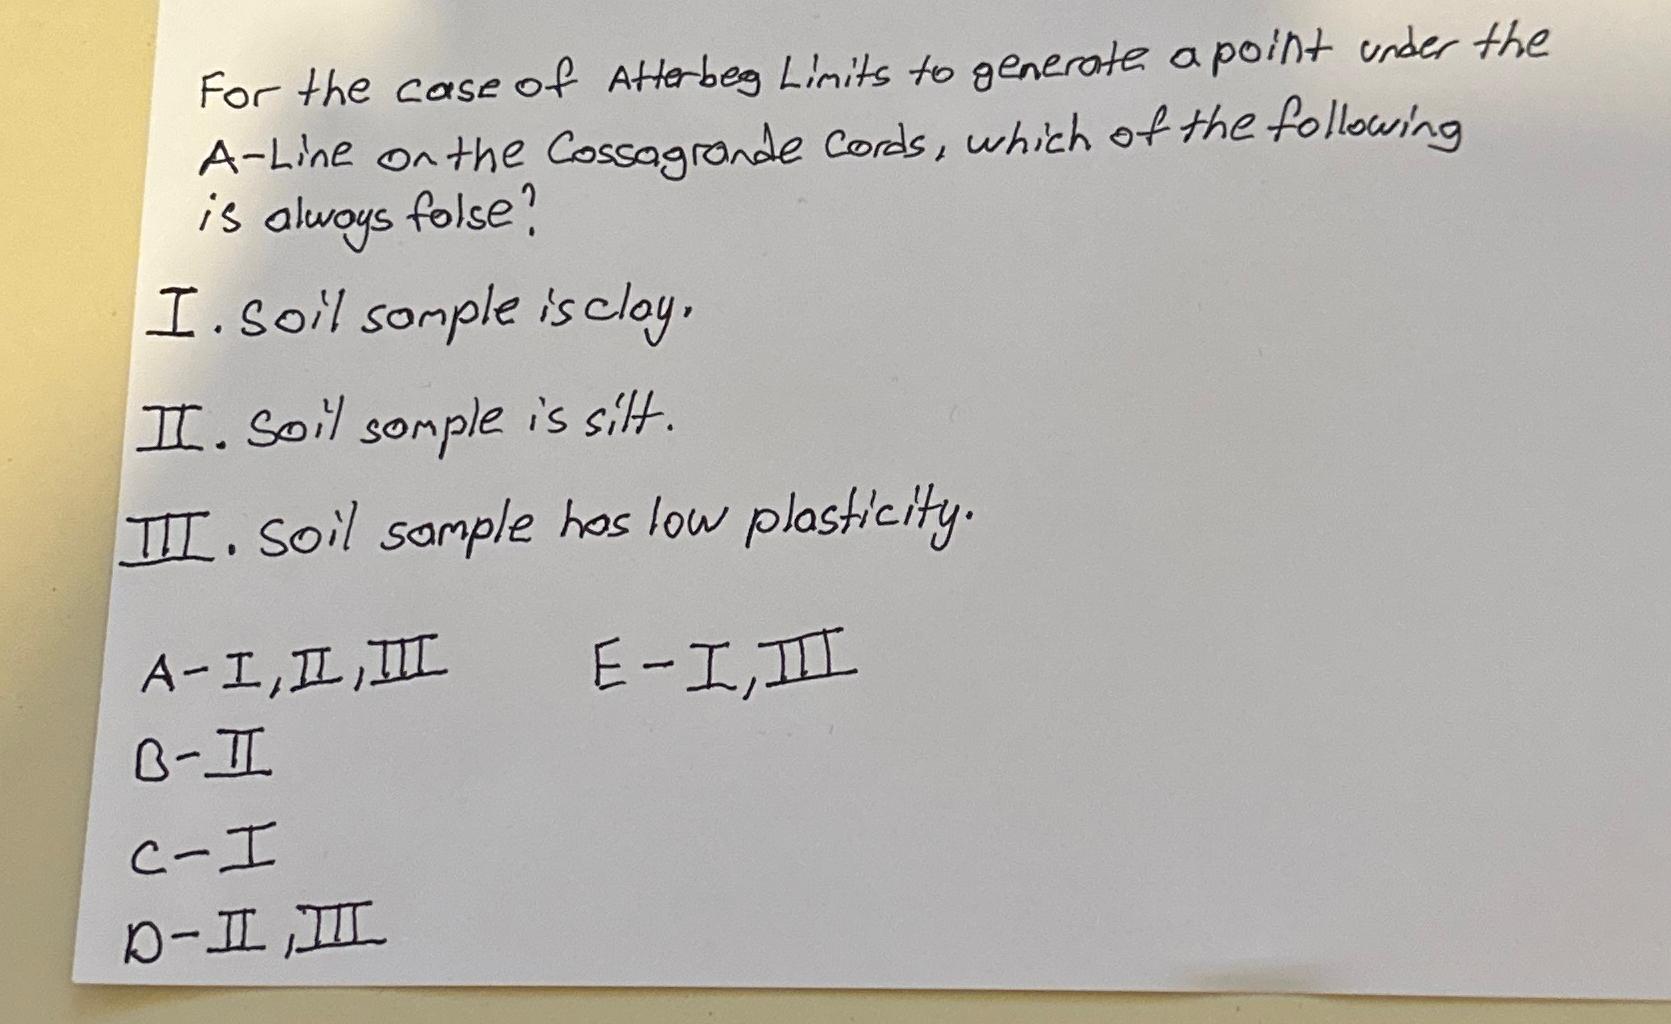 For the case of Atterbeg Limits to generate a point under the
A-Line on the Cassagrande Cards, which of the following
is always false?
I. Soil sample is clay.
II. Soil sample is silt.
III. Soil sample has low plasticity.
A-I, II, III E-I, III
B-II
C-I
D-II, III